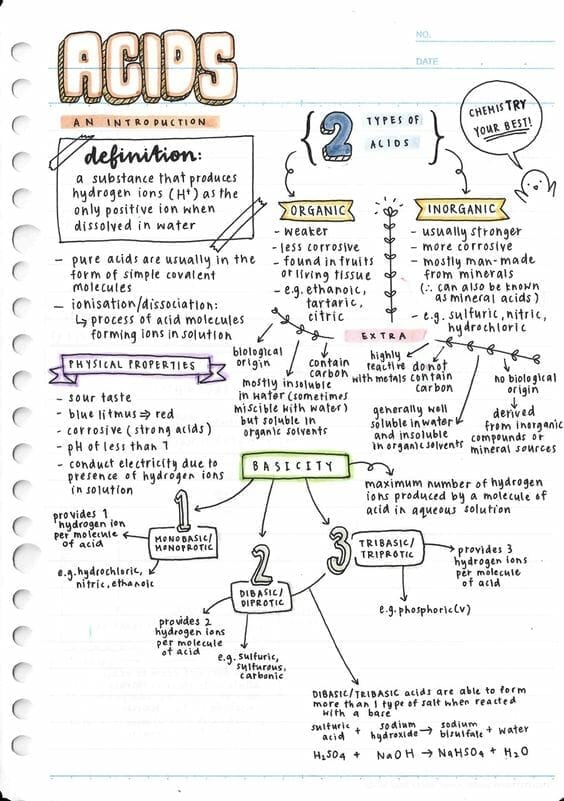 NO.
DATE
ACIDS
AN INTRODUCTION
definition:
a substance that produces
hydrogen ions (H⁺) as the
only positive ion when
dissolved in water
- pure acids are usually in the
form of simple covalent
molecules
- ionisation/dissociation:
↳ process of acid molecules
forming ions in solution
PHYSICAL PROPERTIES
- sour taste
- blue litmus ⇒ red
- corrosive (strong acids)
- pH of less than 7
- conduct electricity due to
presence of hydrogen ions
in solution
{ 2 TYPES OF
ACIDS }
CHEMISTRY
YOUR BEST!
ORGANIC
- weaker
- less corrosive
- found in fruits
or living tissue
- e.g. ethanoic,
tartaric,
citric
INORGANIC
- usually stronger
- more corrosive
- mostly man-made
from minerals
(∴ can also be known
as mineral acids)
- e.g. sulfuric, nitric,
hydrochloric
EXTRA
biological
origin
mostly insoluble
in water (sometimes
miscible with water)
but soluble in
organic solvents
contain
carbon
highly
reactive
with metals
do not
contain
carbon
generally well
soluble in water
and insoluble
in organic solvents
no biological
origin
derived
from inorganic
compounds or
mineral sources
BASICITY
maximum number of hydrogen
ions produced by a molecule of
acid in aqueous solution
1
MONOBASIC/
MONOPROTIC
provides 1
hydrogen ion
per molecule
of acid
e.g. hydrochloric,
nitric, ethanoic
2
DIBASIC/
DIPROTIC
provides 2
hydrogen ions
per molecule
of acid
e.g. sulfuric,
sulfurous,
carbonic
3
TRIBASIC/
TRIPROTIC
provides 3
hydrogen ions
per molecule
of acid
e.g. phosphoric(v)
DIBASIC/TRIBASIC acids are able to form
more than 1 type of salt when reacted
with a base
sulfuric acid + sodium hydroxide → sodium bisulfate + water
H₂SO₄ + NaOH → NaHSO₄ + H₂O